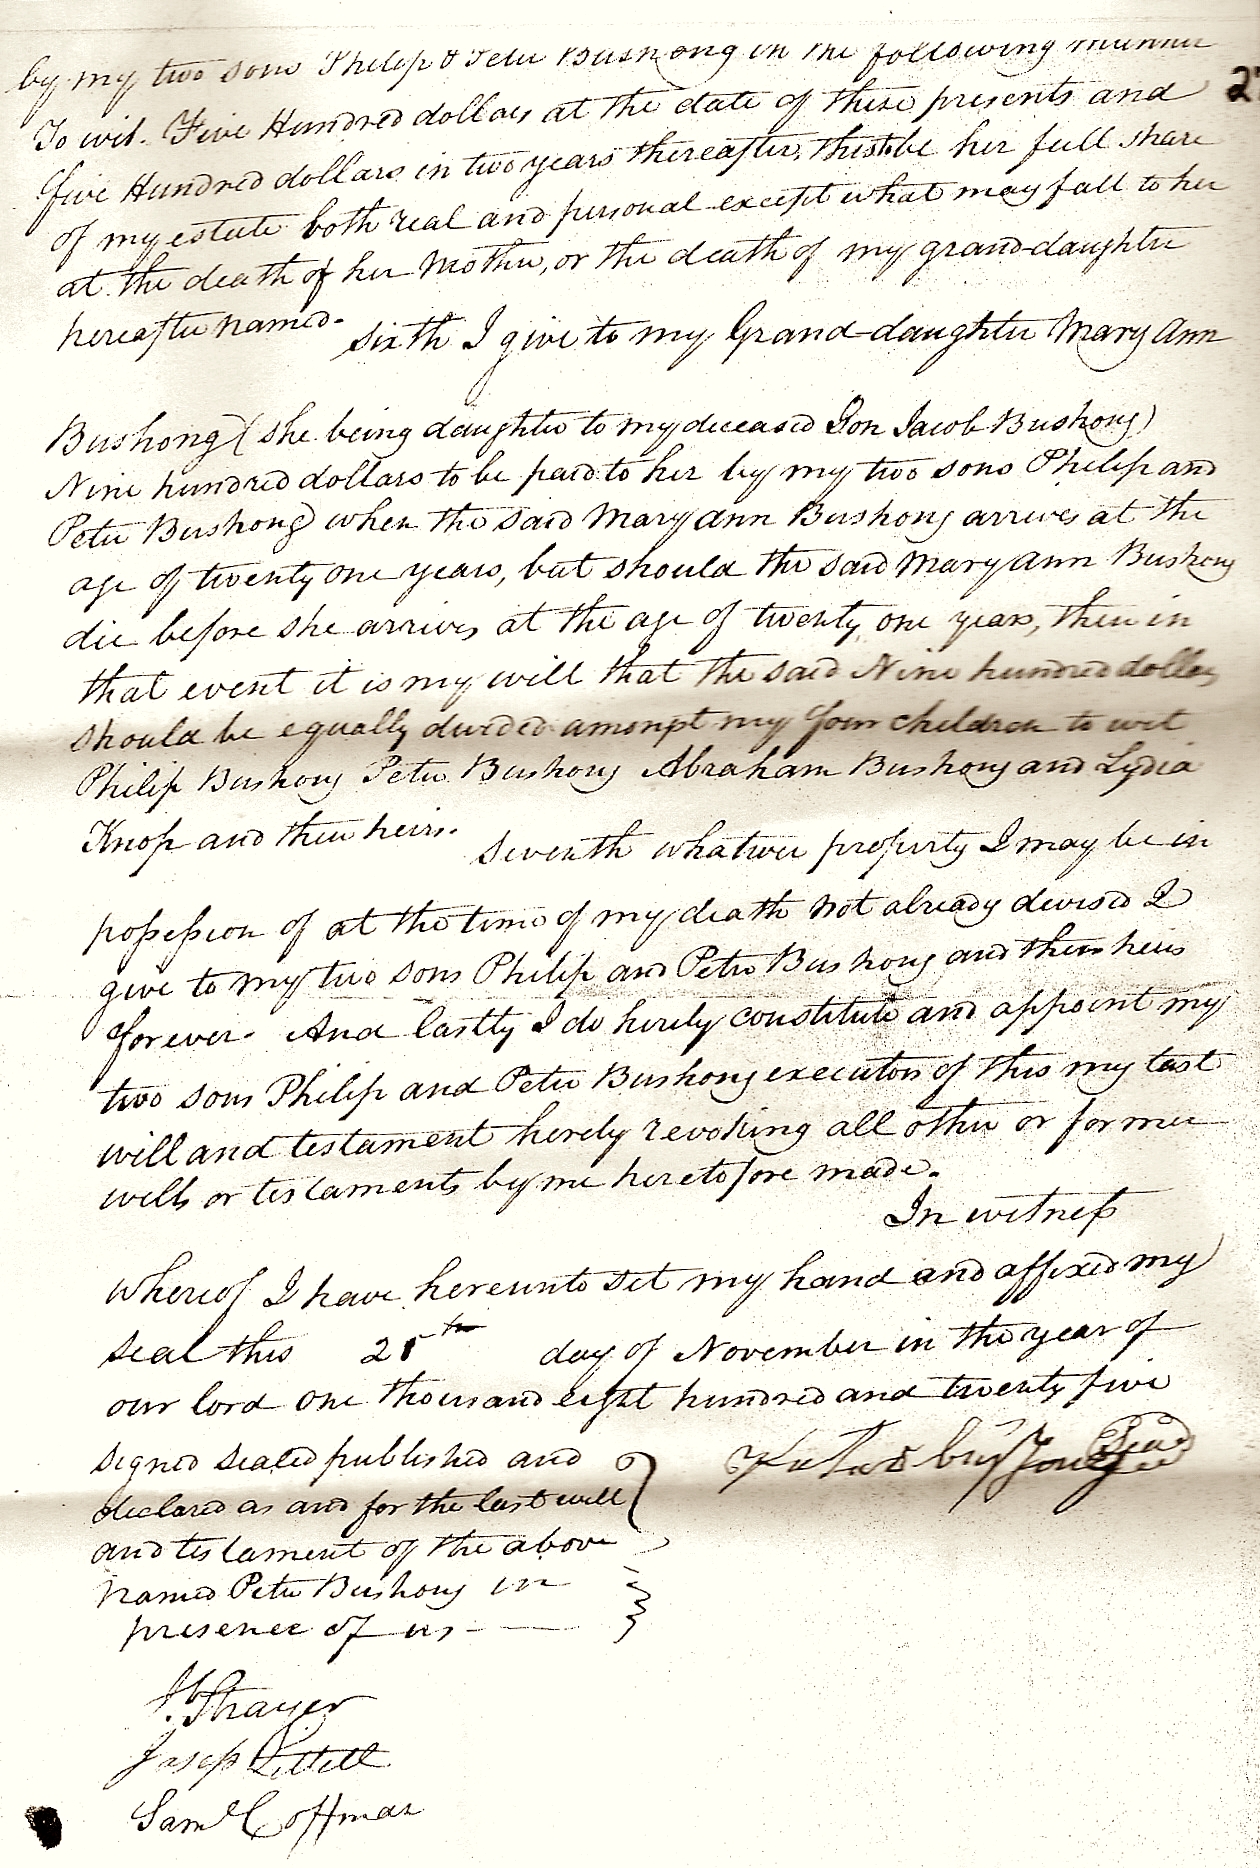 by my two sons Philip & Peter Bushong in the following manner
27
To wit. Five Hundred dollars at the date of these presents and
five Hundred dollars in two years thereafter, this to be her full share
of my estate both real and personal except what may fall to her
at the death of her Mother, or the death of my grand-daughter
hereafter named-
sixth I give to my Grand-daughter Mary Ann
Bushong (she being daughter to my deceased Son Jacob Bushong)
Nine hundred dollars to be paid to her by my two sons Philip and
Peter Bushong when the said Mary Ann Bushong arrives at the
age of twenty one years, but should the said Mary Ann Bushong
die before she arrives at the age of twenty one years, then in
that event it is my will that the said Nine hundred dollars
should be equally divided amongst my four children to wit
Philip Bushong Peter Bushong Abraham Bushong and Lydia
Knop and their heirs.
Seventh whatever property I may be in
possession of at the time of my death not already devised I
give to my two sons Philip and Peter Bushong and their heirs
forever. And lastly I do hereby constitute and appoint my
two sons Philip and Peter Bushong executors of this my last
will and testament hereby revoking all other or former
wills or testaments by me heretofore made.
In witness
whereof I have hereunto set my hand and affixed my
seal this 28th day of November in the year of
our lord one thousand eight hundred and twenty five
signed sealed published and
declared as and for the last will
and testament of the above
named Peter Bushong in
presence of us-
Seal
Thayer
Joseph Littell
Saml Coffman